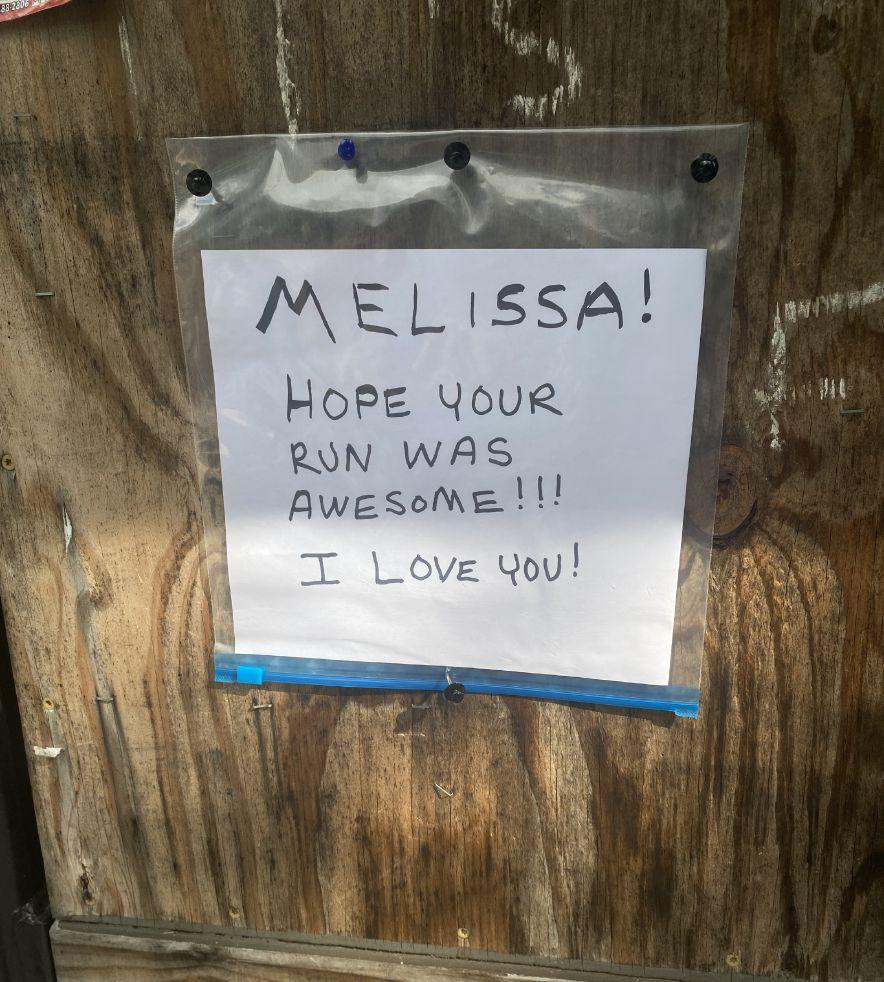 88-2806
MELISSA!
HOPE YOUR
RUN WAS
AWESOME!!!
I LOVE YOU!